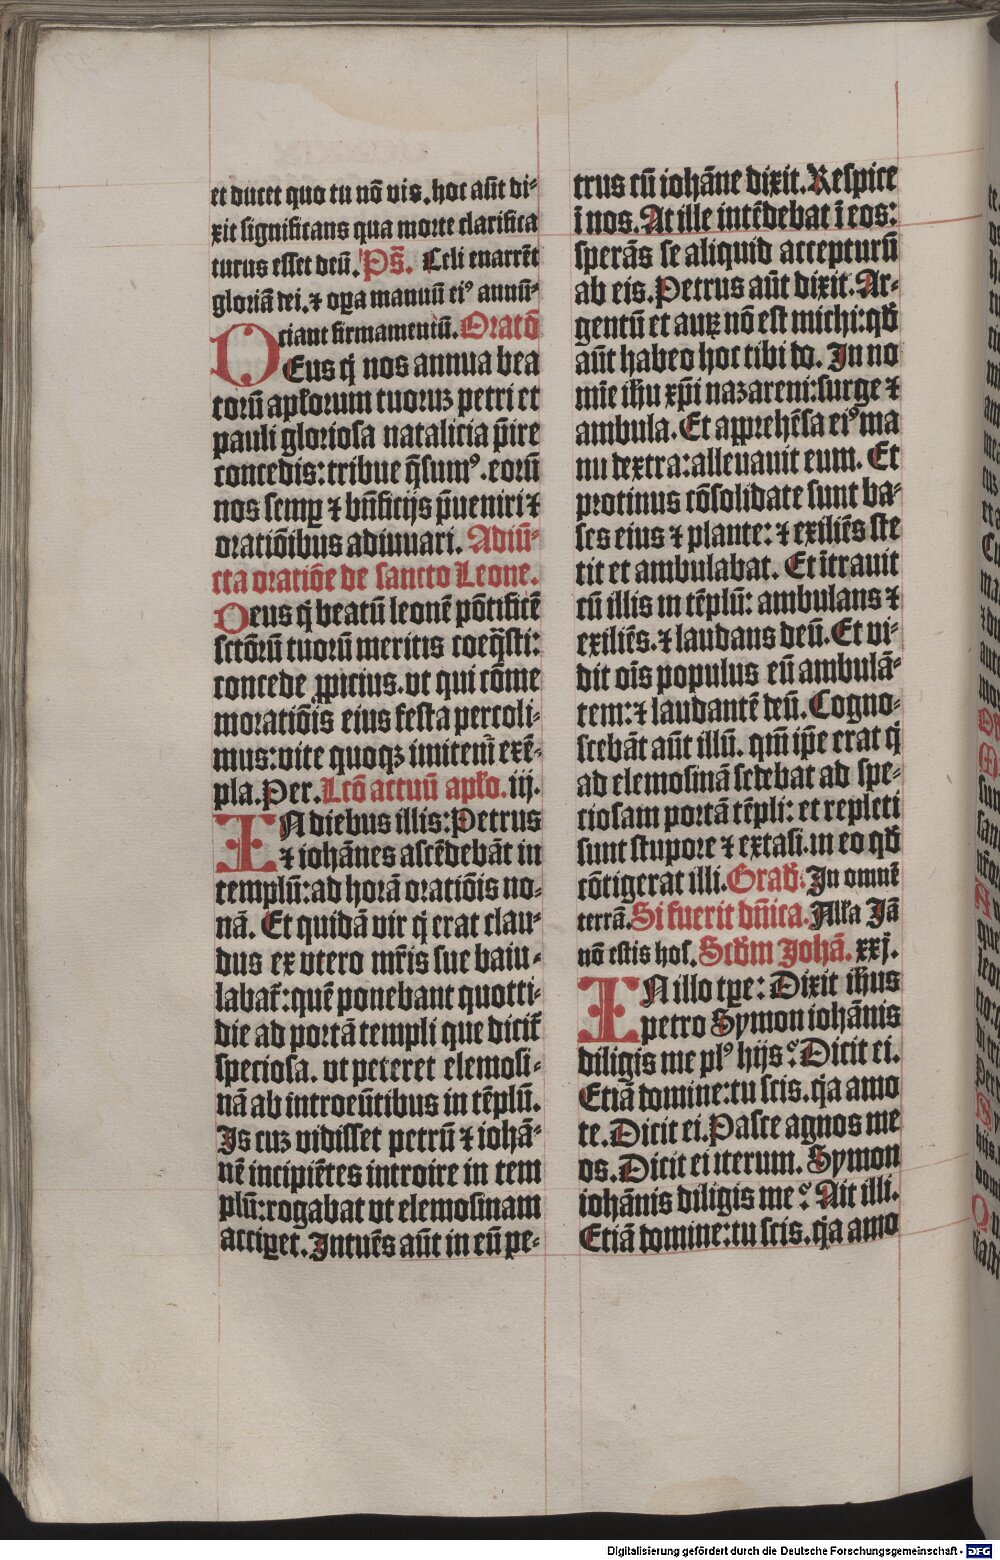 et ducet quo tu nō vis. hoc aūt di⸗
xit significans qua morte clarifica
turus esset deū. Ps̄. Celi enarrēt
gloriā dei. ⁊ oꝑa manuū eiꝰ annū⸗
ciant firmamentū. Oratō
DEus q̄ nos annua bea
torū apl̄orum tuoruz petri et
pauli gloriosa natalicia p̄ire
concedis: tribue q̄sumꝰ. eorū
nos semꝑ ⁊ bn̄ficijs p̄ueniri ⁊
oratiōibus adiuuari. Adiū⸗
cta oratiōe de sancto Leone.
Deus q̄ beatū leonē pōtificē
sctōrū tuorū meritis coeq̄sti:
concede ꝓpicius. vt qui cōme
moratiōis eius festa percoli⸗
mus: vite quoqꝫ imitem̄ exē⸗
pla. Per. Lcō actuū apl̄o. iij.
IN diebus illis: Petrus
⁊ iohānes ascēdebāt in
templū: ad horā oratiōis no⸗
nā. Et quidā vir q̄ erat clau⸗
dus ex vtero mr̄is sue baiu⸗
labat̄: quē ponebant quotti⸗
die ad portā templi que dicit̄
speciosa. vt peteret elemosi⸗
nā ab introeūtibus in tēplū.
Is cuz vidisset petrū ⁊ iohā⸗
nē incipiētes introire in tem
plū: rogabat vt elemosinam
acciꝑet. Intuēs aūt in eū pe⸗
trus cū iohāne dixit. Respice
ī nos. At ille intēdebat ī eos:
sperās se aliquid accepturū
ab eis. Petrus aūt dixit. Ar⸗
gentū et auꝝ nō est michi: qd̄
aūt habeo hoc tibi do. In no
mīe ih̄u xp̄i nazareni: surge ⁊
ambula. Et apprehēsa eiꝰ ma
nu dextra: alleuauit eum. Et
protinus cōsolidate sunt ba⸗
ses eius ⁊ plante: ⁊ exiliēs ste
tit et ambulabat. Et ītrauit
cū illis in tēplū: ambulans ⁊
exiliēs. ⁊ laudans deū. Et vi⸗
dit oīs populus eū ambulā⸗
tem: ⁊ laudantē deū. Cogno⸗
scebāt aūt illū. qm̄ ip̄e erat q̄
ad elemosinā sedebat ad spe⸗
ciosam portā tēpli: et repleti
sunt stupore ⁊ extasi. in eo qd̄
cōtigerat illi. Grad̄. In omnē
terrā. Si fuerit dn̄ica. All̄a Jā
nō estis hos. Scd̄m Johā. xxj.
IN illo tꝑe: Dixit ih̄us
petro Symon iohānis
diligis me plꝰ hijs? Dicit ei.
Etiā domine: tu scis. q̄a amo
te. Dicit ei. Pasce agnos me
os. Dicit ei iterum. Symon
iohānis diligis me? Ait illi.
Etiā domine: tu scis. q̄a amo
Digitalisierung gefördert durch die Deutsche Forschungsgemeinschaft - DFG